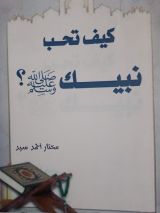 كيف تحب
نبيك ﷺ ؟
مختار أحمد سيد